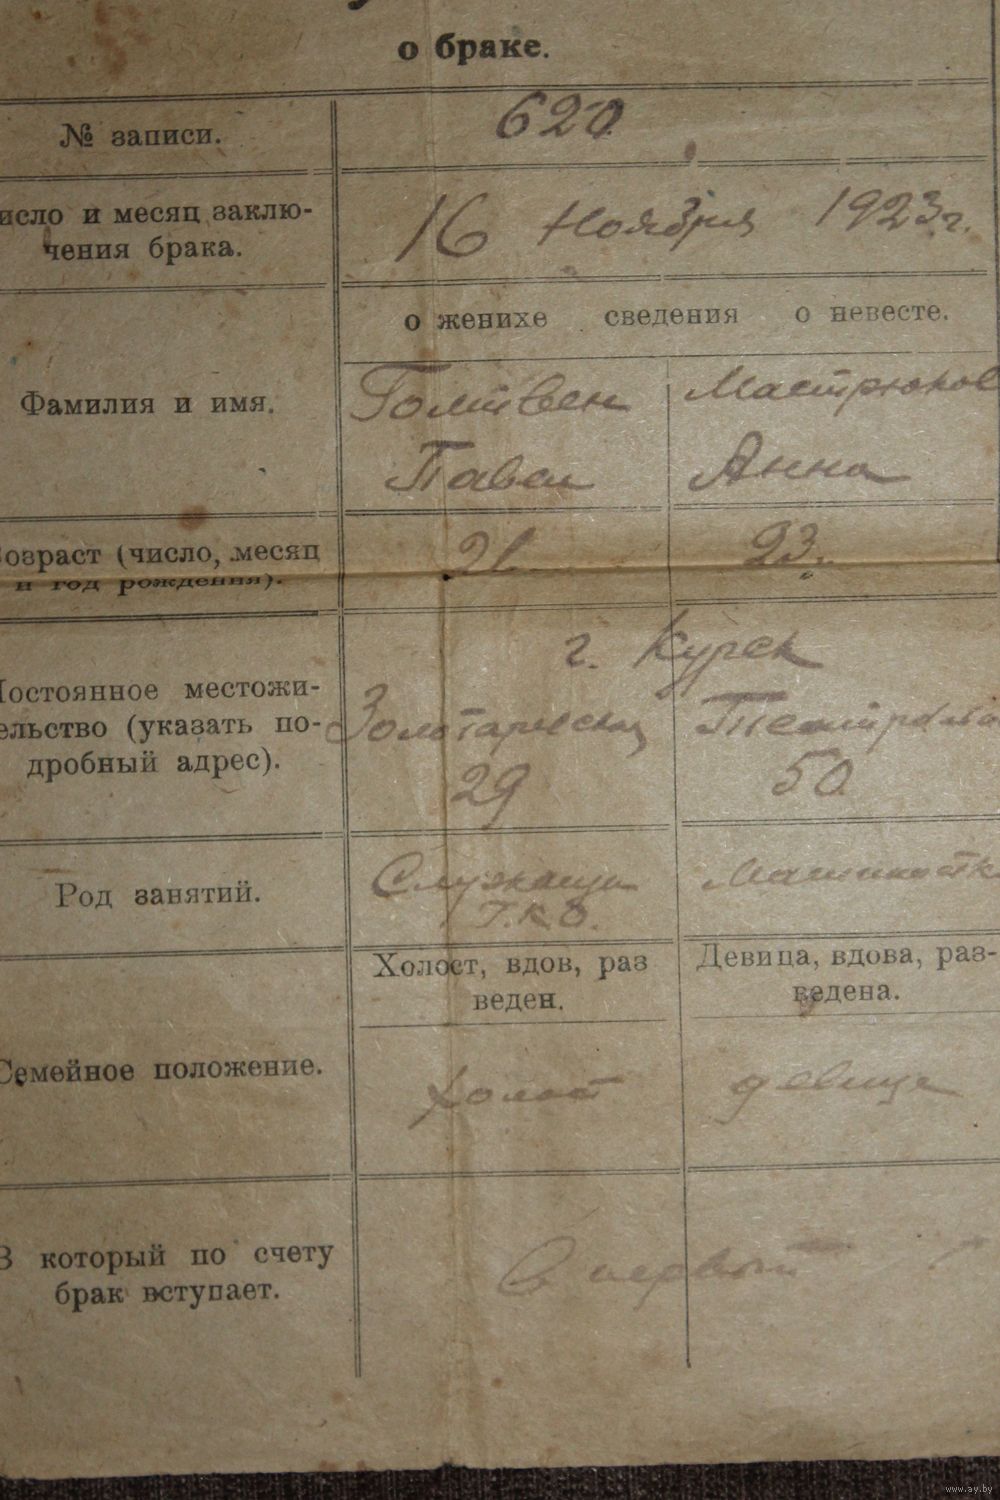 о браке.
№ записи.
620.
исло и месяц заклю-
чения брака.
16 Ноября 1923 г.
о женихе сведения о невесте.
Фамилия и имя.
Мастрюков
Павел
Анна
озраст (число, месяц
и год рождения).
21.
23.
г. Курск
остоянное местожи-
ельство (указать по-
дробный адрес).
29
50
Род занятий.
Служащий
Машинистк
Холост, вдов, раз
веден.
Девица, вдова, раз-
ведена.
Семейное положение.
холост
девица
В который по счету
брак вступает.
В первый
www.ay.by